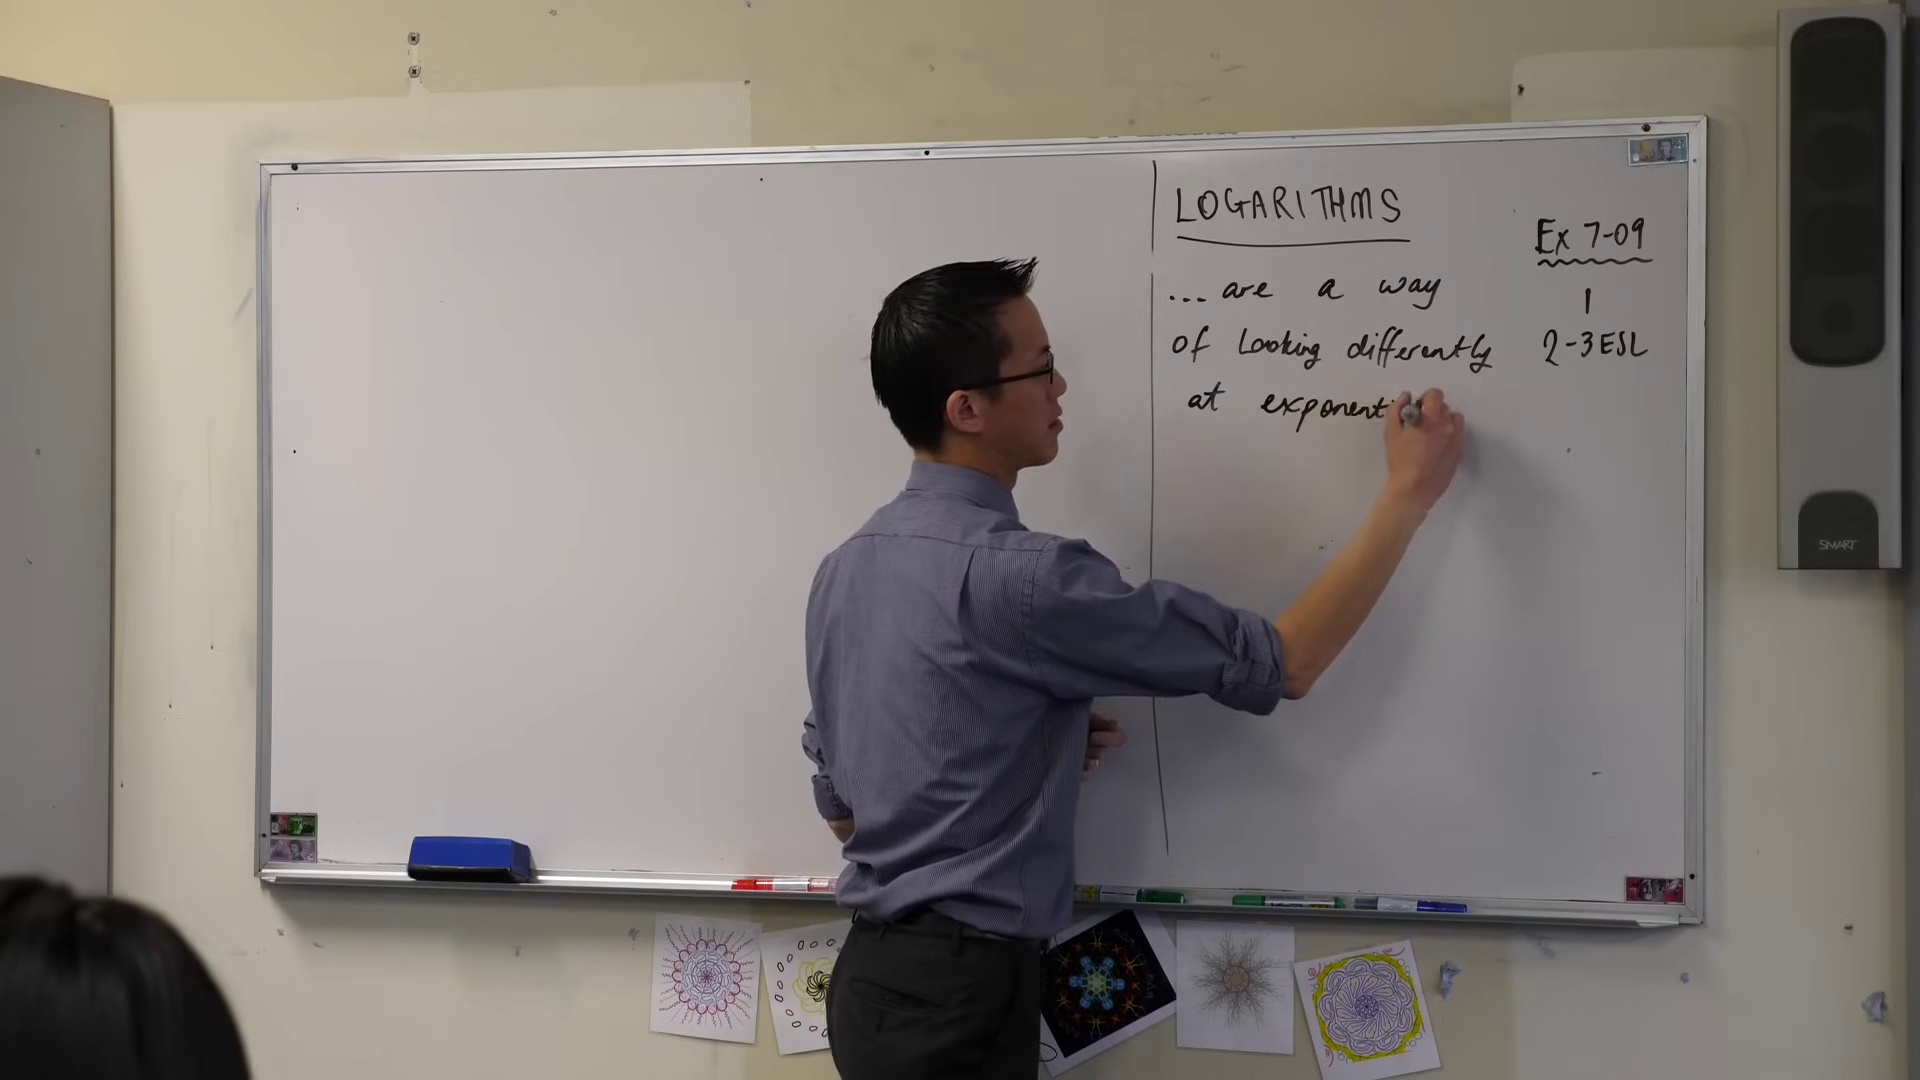 LOGARITHMS
... are a way
of looking differently
at exponenti
Ex 7-09
1
2-3ESL
SMART